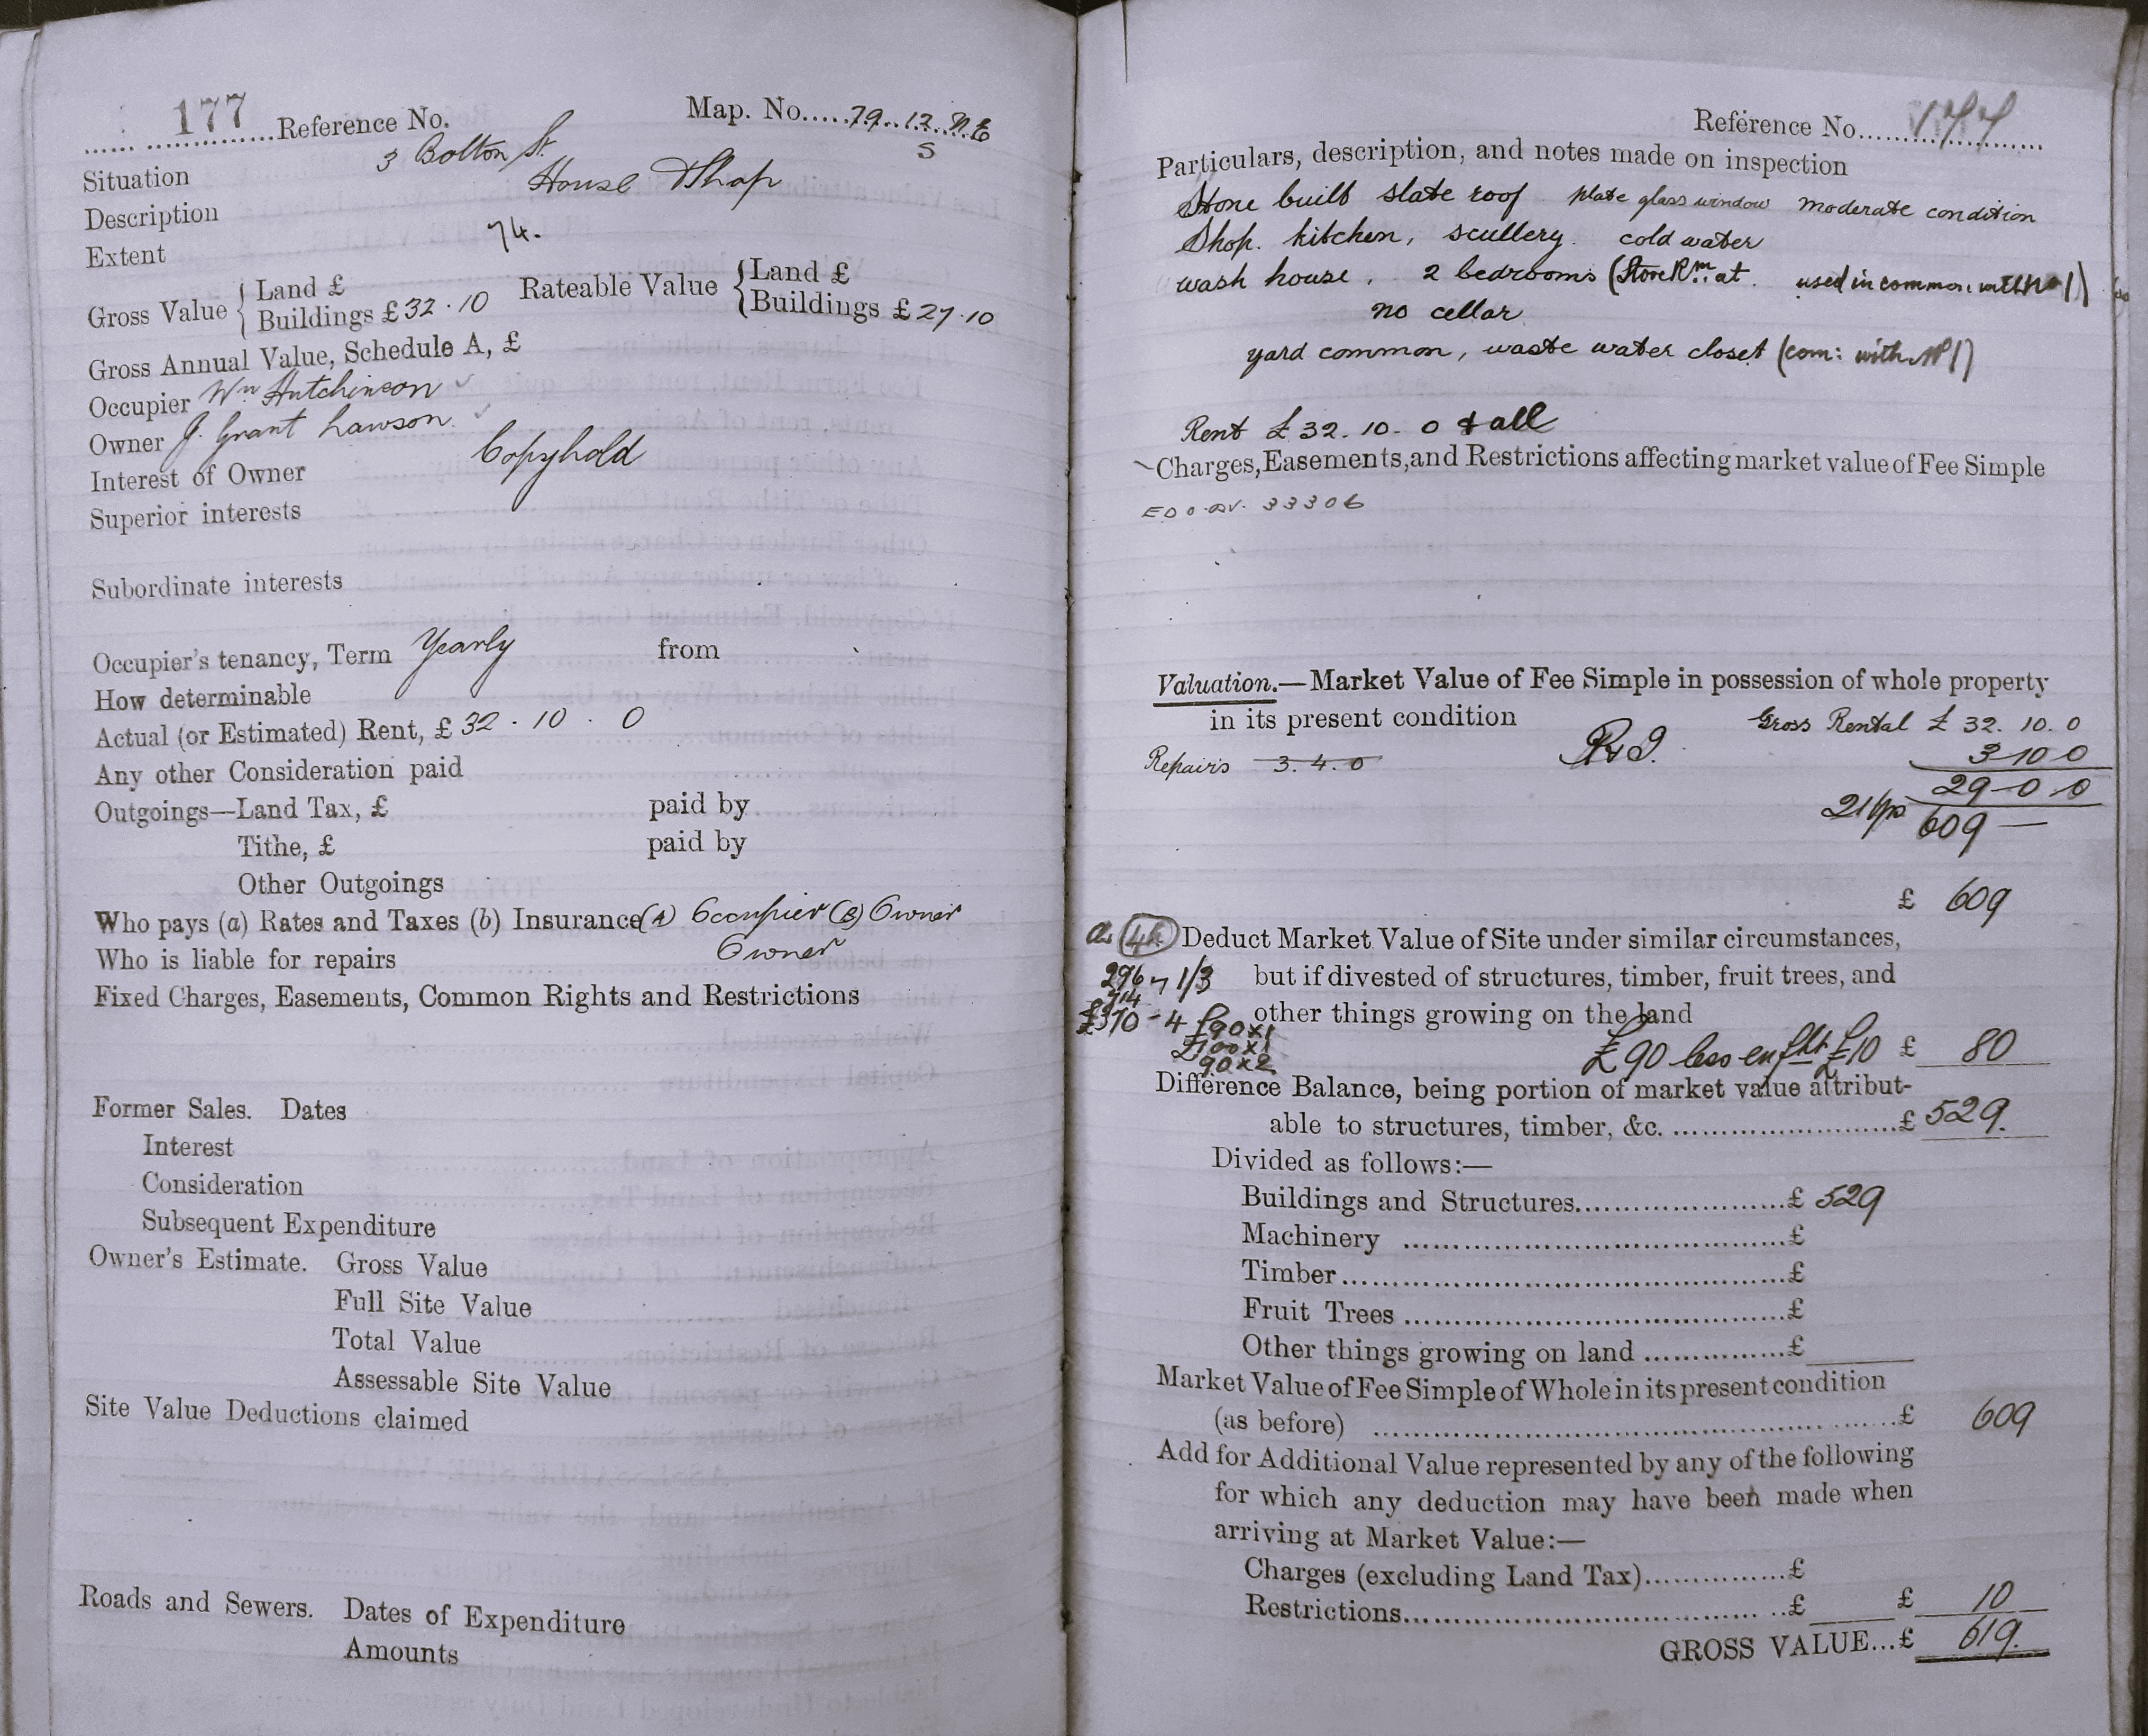 177 Reference No. Map. No. 79. 12. N.E
S
Situation 3 Bolton St.
Description House & Shop
Extent 74.
Gross Value { Land £
Buildings £ 32 . 10
Rateable Value { Land £
Buildings £ 27 . 10
Gross Annual Value, Schedule A, £
Occupier Wm Hutchinson ✓
Owner J. Grant Lawson. ✓
Interest of Owner Copyhold
Superior interests
Subordinate interests
Occupier's tenancy, Term Yearly from
How determinable
Actual (or Estimated) Rent, £ 32 . 10 . 0
Any other Consideration paid
Outgoings—Land Tax, £ paid by
Tithe, £ paid by
Other Outgoings
Who pays (a) Rates and Taxes (b) Insurance (A) Occupier (B) Owner
Who is liable for repairs Owner
Fixed Charges, Easements, Common Rights and Restrictions
Former Sales. Dates
Interest
Consideration
Subsequent Expenditure
Owner's Estimate. Gross Value
Full Site Value
Total Value
Assessable Site Value
Site Value Deductions claimed
Roads and Sewers. Dates of Expenditure
Amounts
Reference No. 177
Particulars, description, and notes made on inspection
Stone built slate roof plate glass window moderate condition
Shop. kitchen, scullery. cold water
wash house, 2 bedrooms (Store Rm at used in common with No 1)
no cellar
yard common, waste water closet (com: with No 1)
Rent £ 32. 10. 0 & all
Charges, Easements, and Restrictions affecting market value of Fee Simple
33306
Valuation.—Market Value of Fee Simple in possession of whole property
in its present condition Gross Rental £ 32. 10. 0
Repairs 3. 4. 0 R & I. 3 10 0
29 - 0 . 0
21 Yp 609 —
£ 609
Deduct Market Value of Site under similar circumstances,
296 1/3 but if divested of structures, timber, fruit trees, and
74
£370 - 4 £90 x 1 other things growing on the land
£100 x 1
90 x 2 £90 less enfht £10 £ 80
Difference Balance, being portion of market value attribut-
able to structures, timber, &c. £ 529.
Divided as follows:—
Buildings and Structures £ 529
Machinery £
Timber £
Fruit Trees £
Other things growing on land £
Market Value of Fee Simple of Whole in its present condition
(as before) £ 609
Add for Additional Value represented by any of the following
for which any deduction may have been made when
arriving at Market Value:—
Charges (excluding Land Tax) £
Restrictions £ £ 10
GROSS VALUE...£ 619.